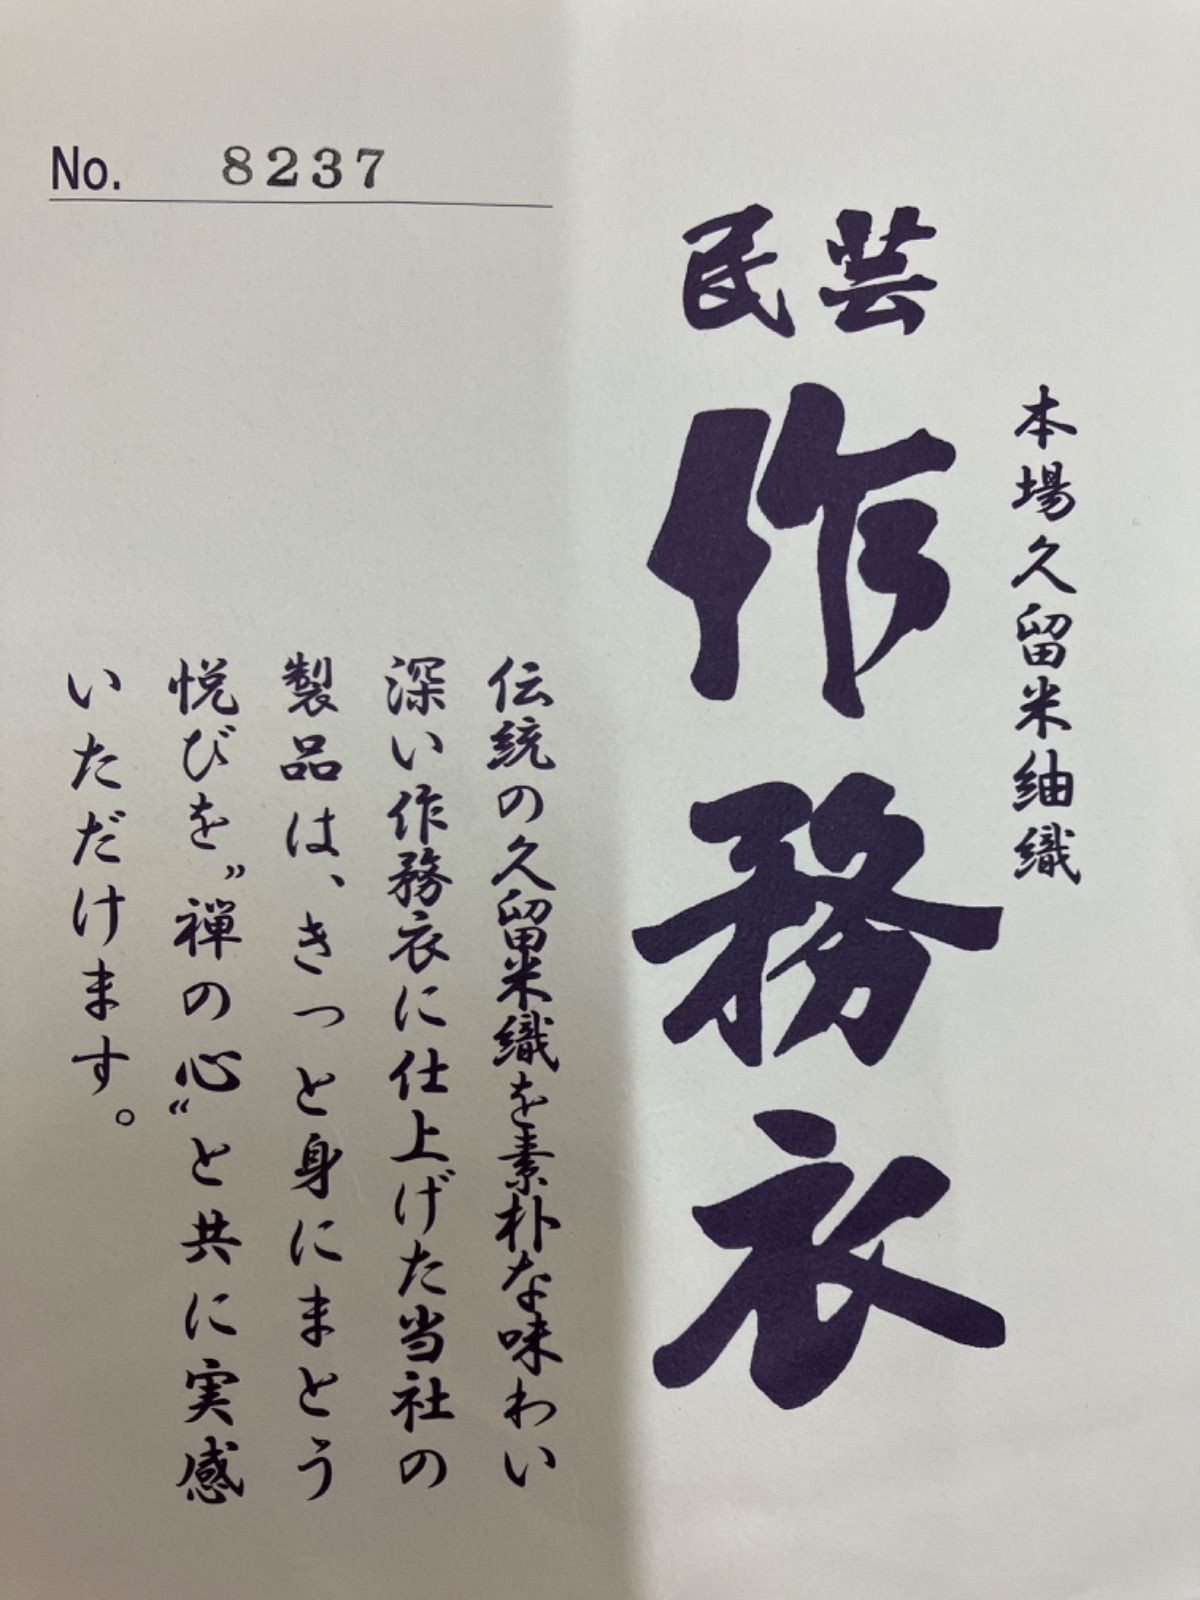 本場久留米紬織
民芸
作務衣
伝統の久留米織を素朴な味わい
深い作務衣に仕上げた当社の
製品は、きっと身にまとう
悦びを〝禅の心〟と共に実感
いただけます。
No. 8237